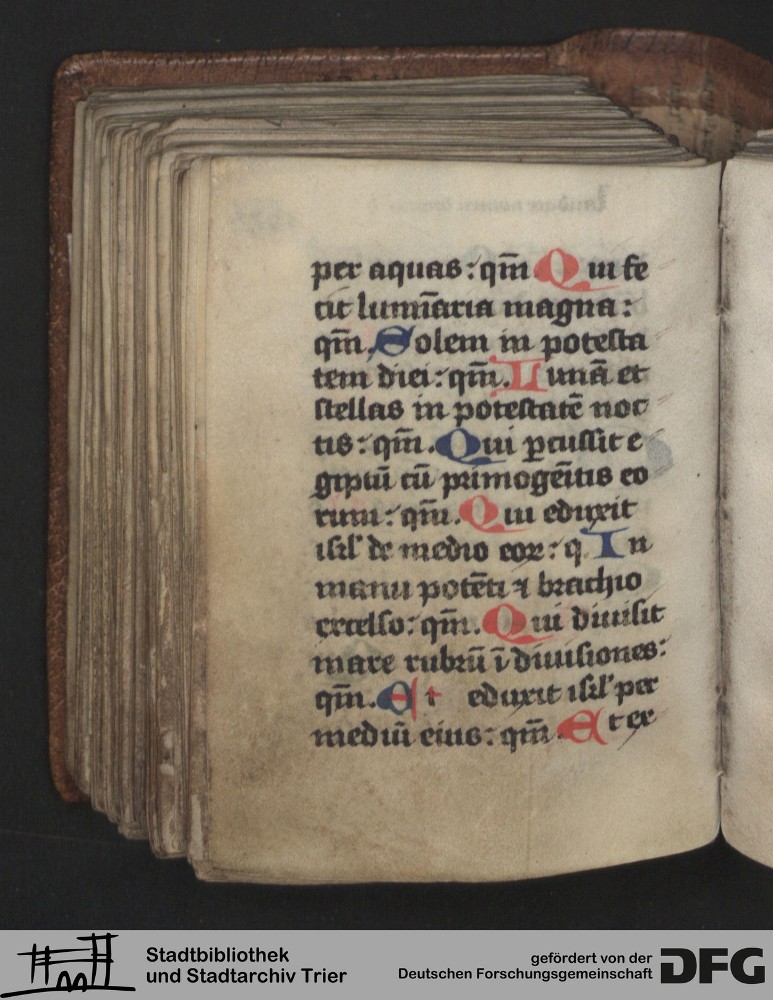 per aquas: qm̄ Qui fe
cit lumīaria magna:
qm̄. Solem in potesta
tem diei: qm̄. Lunā et
stellas in potestatē noc
tis: qm̄. Qui ꝑcussit e
giptū cū primogēitis eo
rum: qm̄. Qui eduxit
isrl' de medio eoꝝ: q In
manu potēti ⁊ brachio
excelso: qm̄. Qui diuisit
mare rubrū ī diuisiones:
qm̄. Et eduxit isrl' per
mediū eius: qm̄. Et ex
Stadtbibliothek
und Stadtarchiv Trier
gefördert von der
Deutschen Forschungsgemeinschaft
DFG